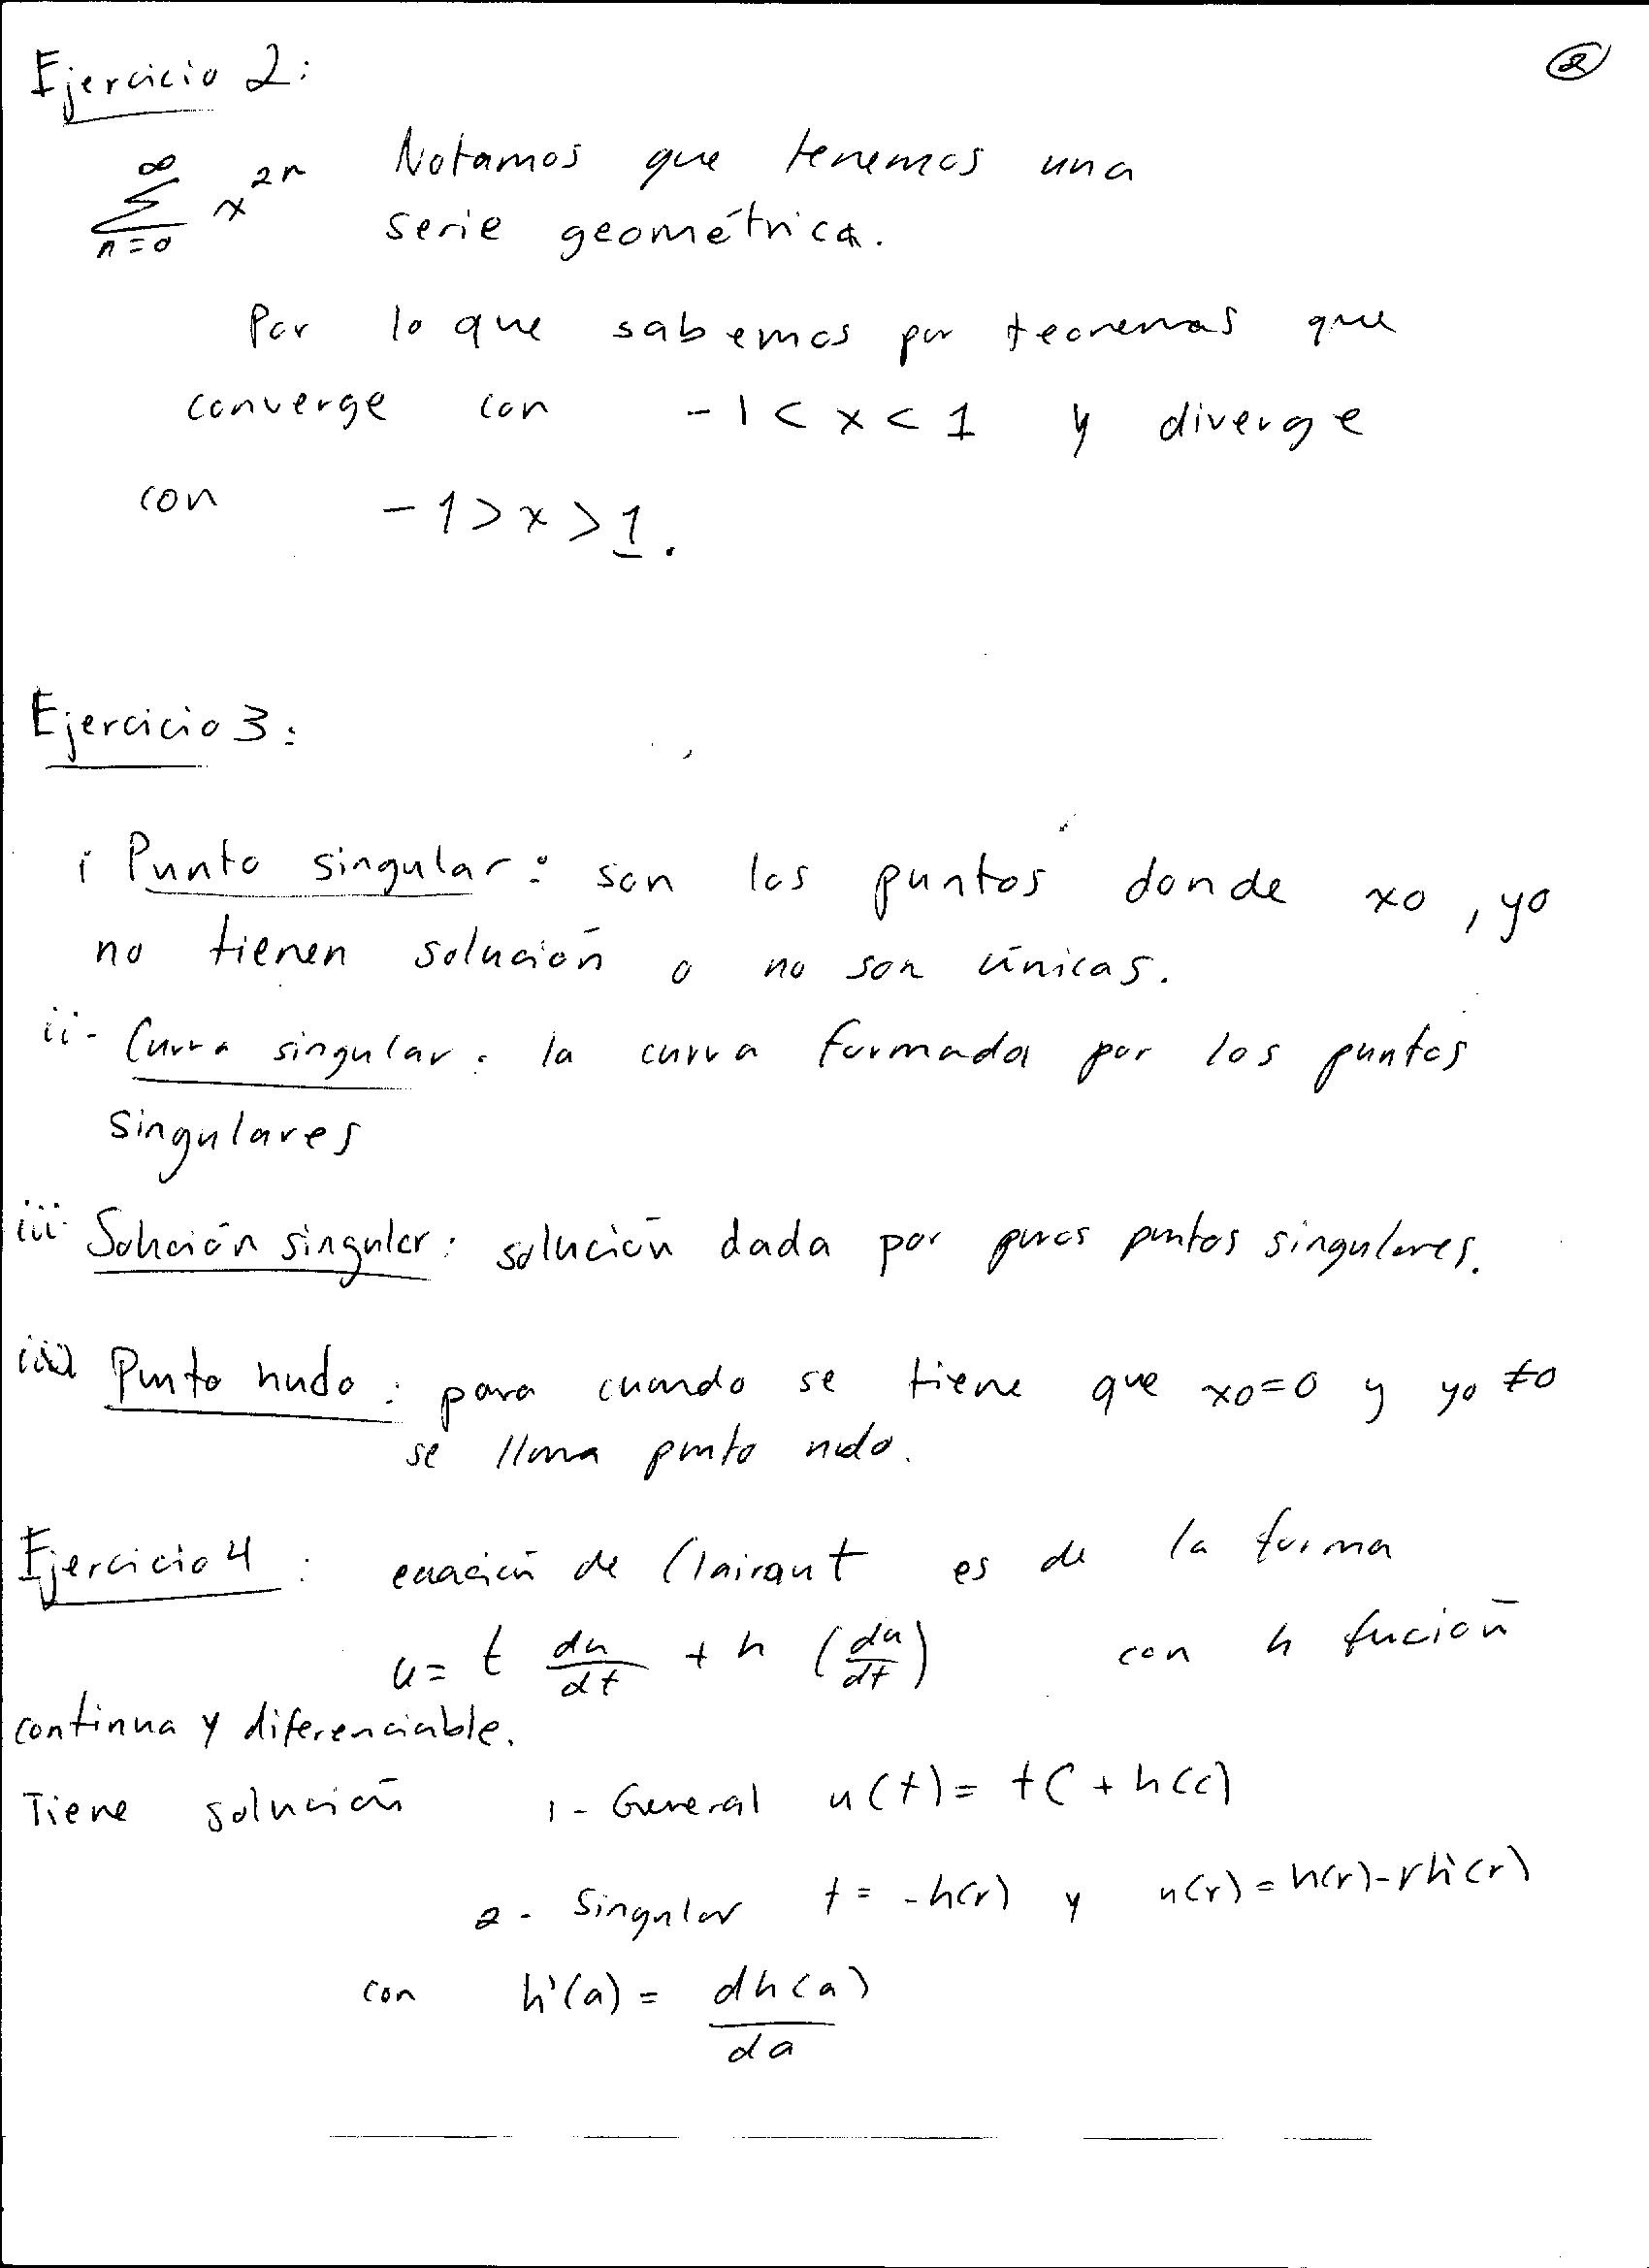 Ejercicio 2:
2
∞
∑ x^2n Notamos que tenemos una
n=0 serie geométrica.
Por lo que sabemos por teoremas que
converge con -1 < x < 1 y diverge
con -1 > x > 1.
Ejercicio 3:
i Punto singular: son los puntos donde xo, yo
no tienen solución o no son únicas.
ii- Curva singular: la curva formada por los puntos
singulares
iii Solución singular: solución dada por puros puntos singulares.
Punto nudo: para cuando se tiene que xo=0 y yo ≠0
se llama punto nudo.
Ejercicio 4: ecuación de Clairaut es de la forma
u = t du/dt + h (du/dt) con h fución
continua y diferenciable.
Tiene solución 1- General u(t) = tC + h(c)
2- Singular t = -h(r) y u(r) = h(r)-rh'(r)
con h'(a) = dh(a)/da